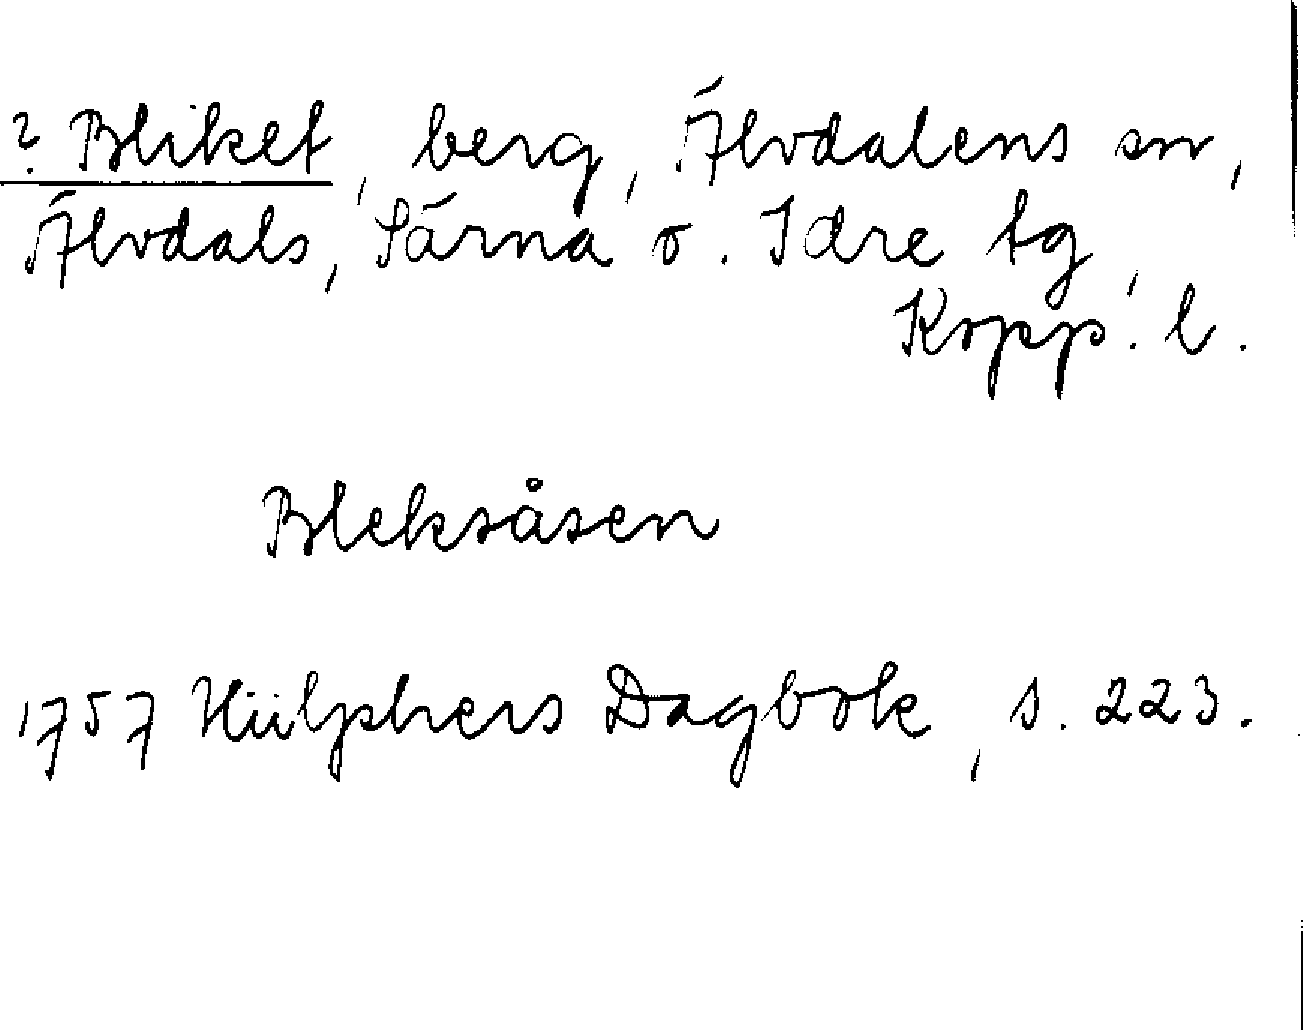 ? Bliket, berg, Älvdalens sn,
Älvdals, Särna o. Idre tg,
Kopp. l.
Bleksåsen
1757 Hülphers Dagbok, s. 223.